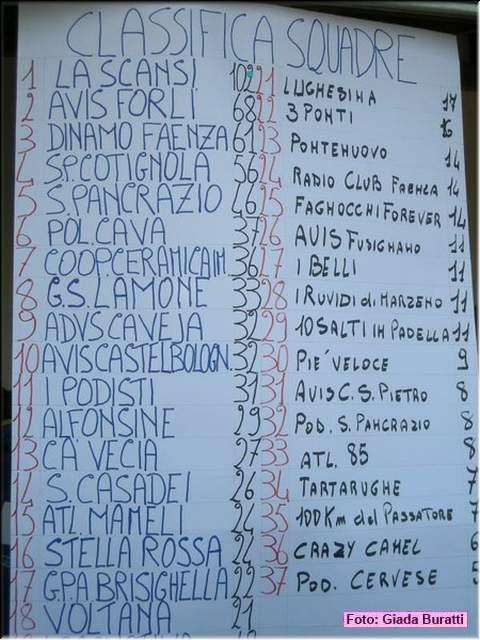 CLASSIFICA SQUADRE
1 LA SCANSI 102
2 AVIS FORLI 68
3 DINAMO FAENZA 61
4 S.P. COTIGNOLA 56
5 S. PANCRAZIO 46
6 POL. CAVA 37
7 COOP. CERAMICA IM. 36
8 G.S. LAMONE 33
9 ADVS CAVEJA 32
10 AVIS CASTEL BOLOGN. 32
11 I PODISTI 31
12 ALFONSINE 29
13 CA' VECIA 27
14 S. CASADEI 26
15 ATL. MAMELI 24
16 STELLA ROSSA 24
17 G.P.A. BRISIGHELLA 22
18 VOLTANA 21
21 LUGHESINA 17
22 3 PONTI 16
23 PONTENUOVO 14
24 RADIO CLUB FAENZA 14
25 FAGNOCCHI FOREVER 14
26 AVIS FUSIGNANO 11
27 I BELLI 11
28 I RUVIDI di MARZENO 11
29 10 SALTI IN PADELLA 11
30 PIE' VELOCE 9
31 AVIS C.S. PIETRO 8
32 POD. S. PANCRAZIO 8
33 ATL. 85 8
34 TARTARUGHE 7
35 100 Km del PASSATORE 7
36 CRAZY CAMEL 6
37 POD. CERVESE 5
Foto: Giada Buratti